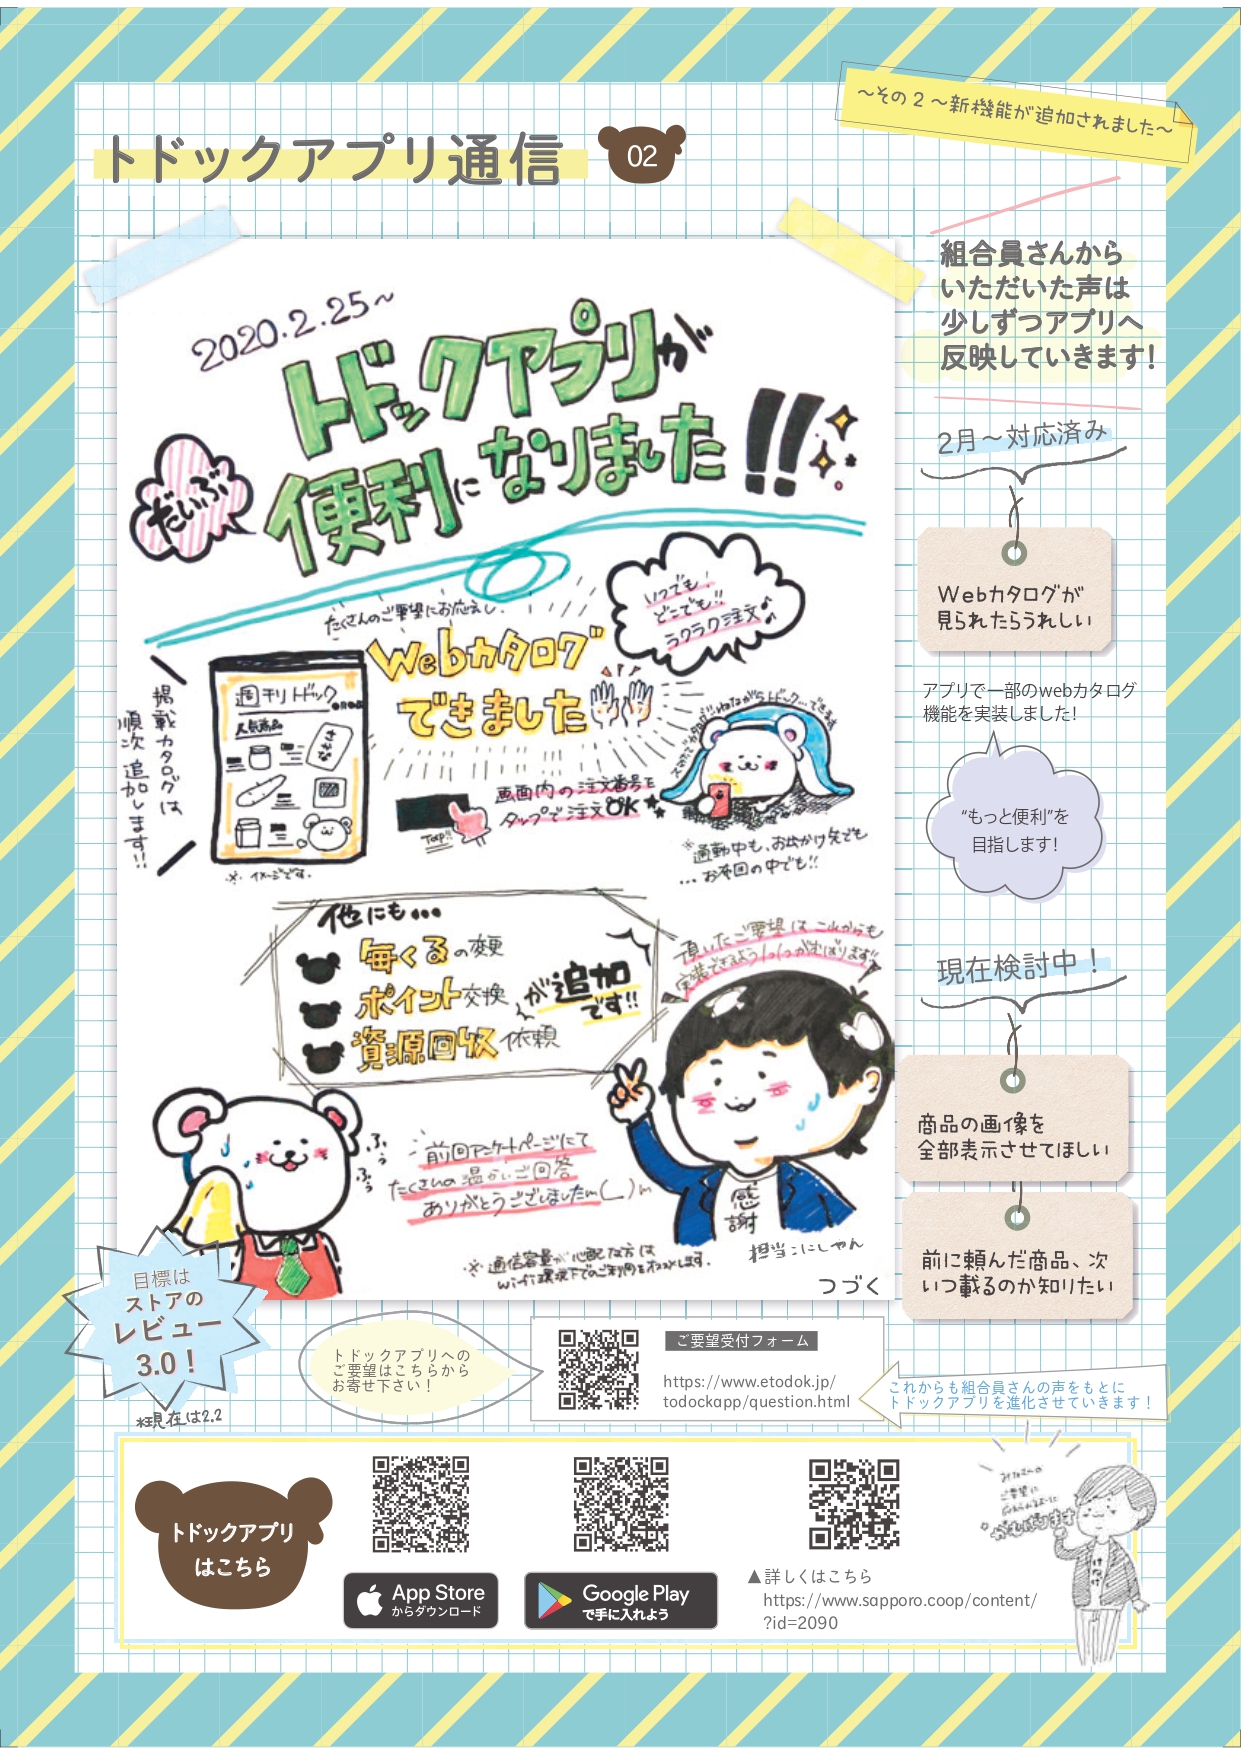 ～その2～新機能が追加されました～
トドックアプリ通信
02
2020.2.25～
トドックアプリが
だいぶ
便利になりました!!
たくさんのご要望にお応えし、
Webカタログ
できました
いつでも!
どこでも!!
ラクラク注文♪
掲載カタログは
順次追加します!!
週刊トドック
人気商品
※イメージです。
画面内の注文番号を
タップで注文OK
Tap!!
※通勤中も、お出かけ先でも
...お布団の中でも!!
他にも...
毎くるの変更
ポイント交換
資源回収依頼
が追加
です!!
頂いたご要望はこれからも
実装できるよう1つ1つがんばります!!
ふぅ
ふぅ
前回アンケートページにて
たくさんの温かいご回答
ありがとうございましたm(_)m
感
謝
担当:にしやん
※通信容量が心配な方は
Wi-Fi環境下でのご利用をオススメします。
つづく
組合員さんから
いただいた声は
少しずつアプリへ
反映していきます!
2月～対応済み
Webカタログが
見られたらうれしい
アプリで一部のwebカタログ
機能を実装しました!
“もっと便利”を
目指します!
現在検討中！
商品の画像を
全部表示させてほしい
前に頼んだ商品、次
いつ載るのか知りたい
目標は
ストアの
レビュー
3.0！
*現在は2.2
トドックアプリへの
ご要望はこちらから
お寄せ下さい！
ご要望受付フォーム
https://www.etodok.jp/
todockapp/question.html
これからも組合員さんの声をもとに
トドックアプリを進化させていきます！
トドックアプリ
はこちら
App Store
からダウンロード
Google Play
で手に入れよう
▲詳しくはこちら
https://www.sapporo.coop/content/
?id=2090
みなさまの
ご要望に
がんばります